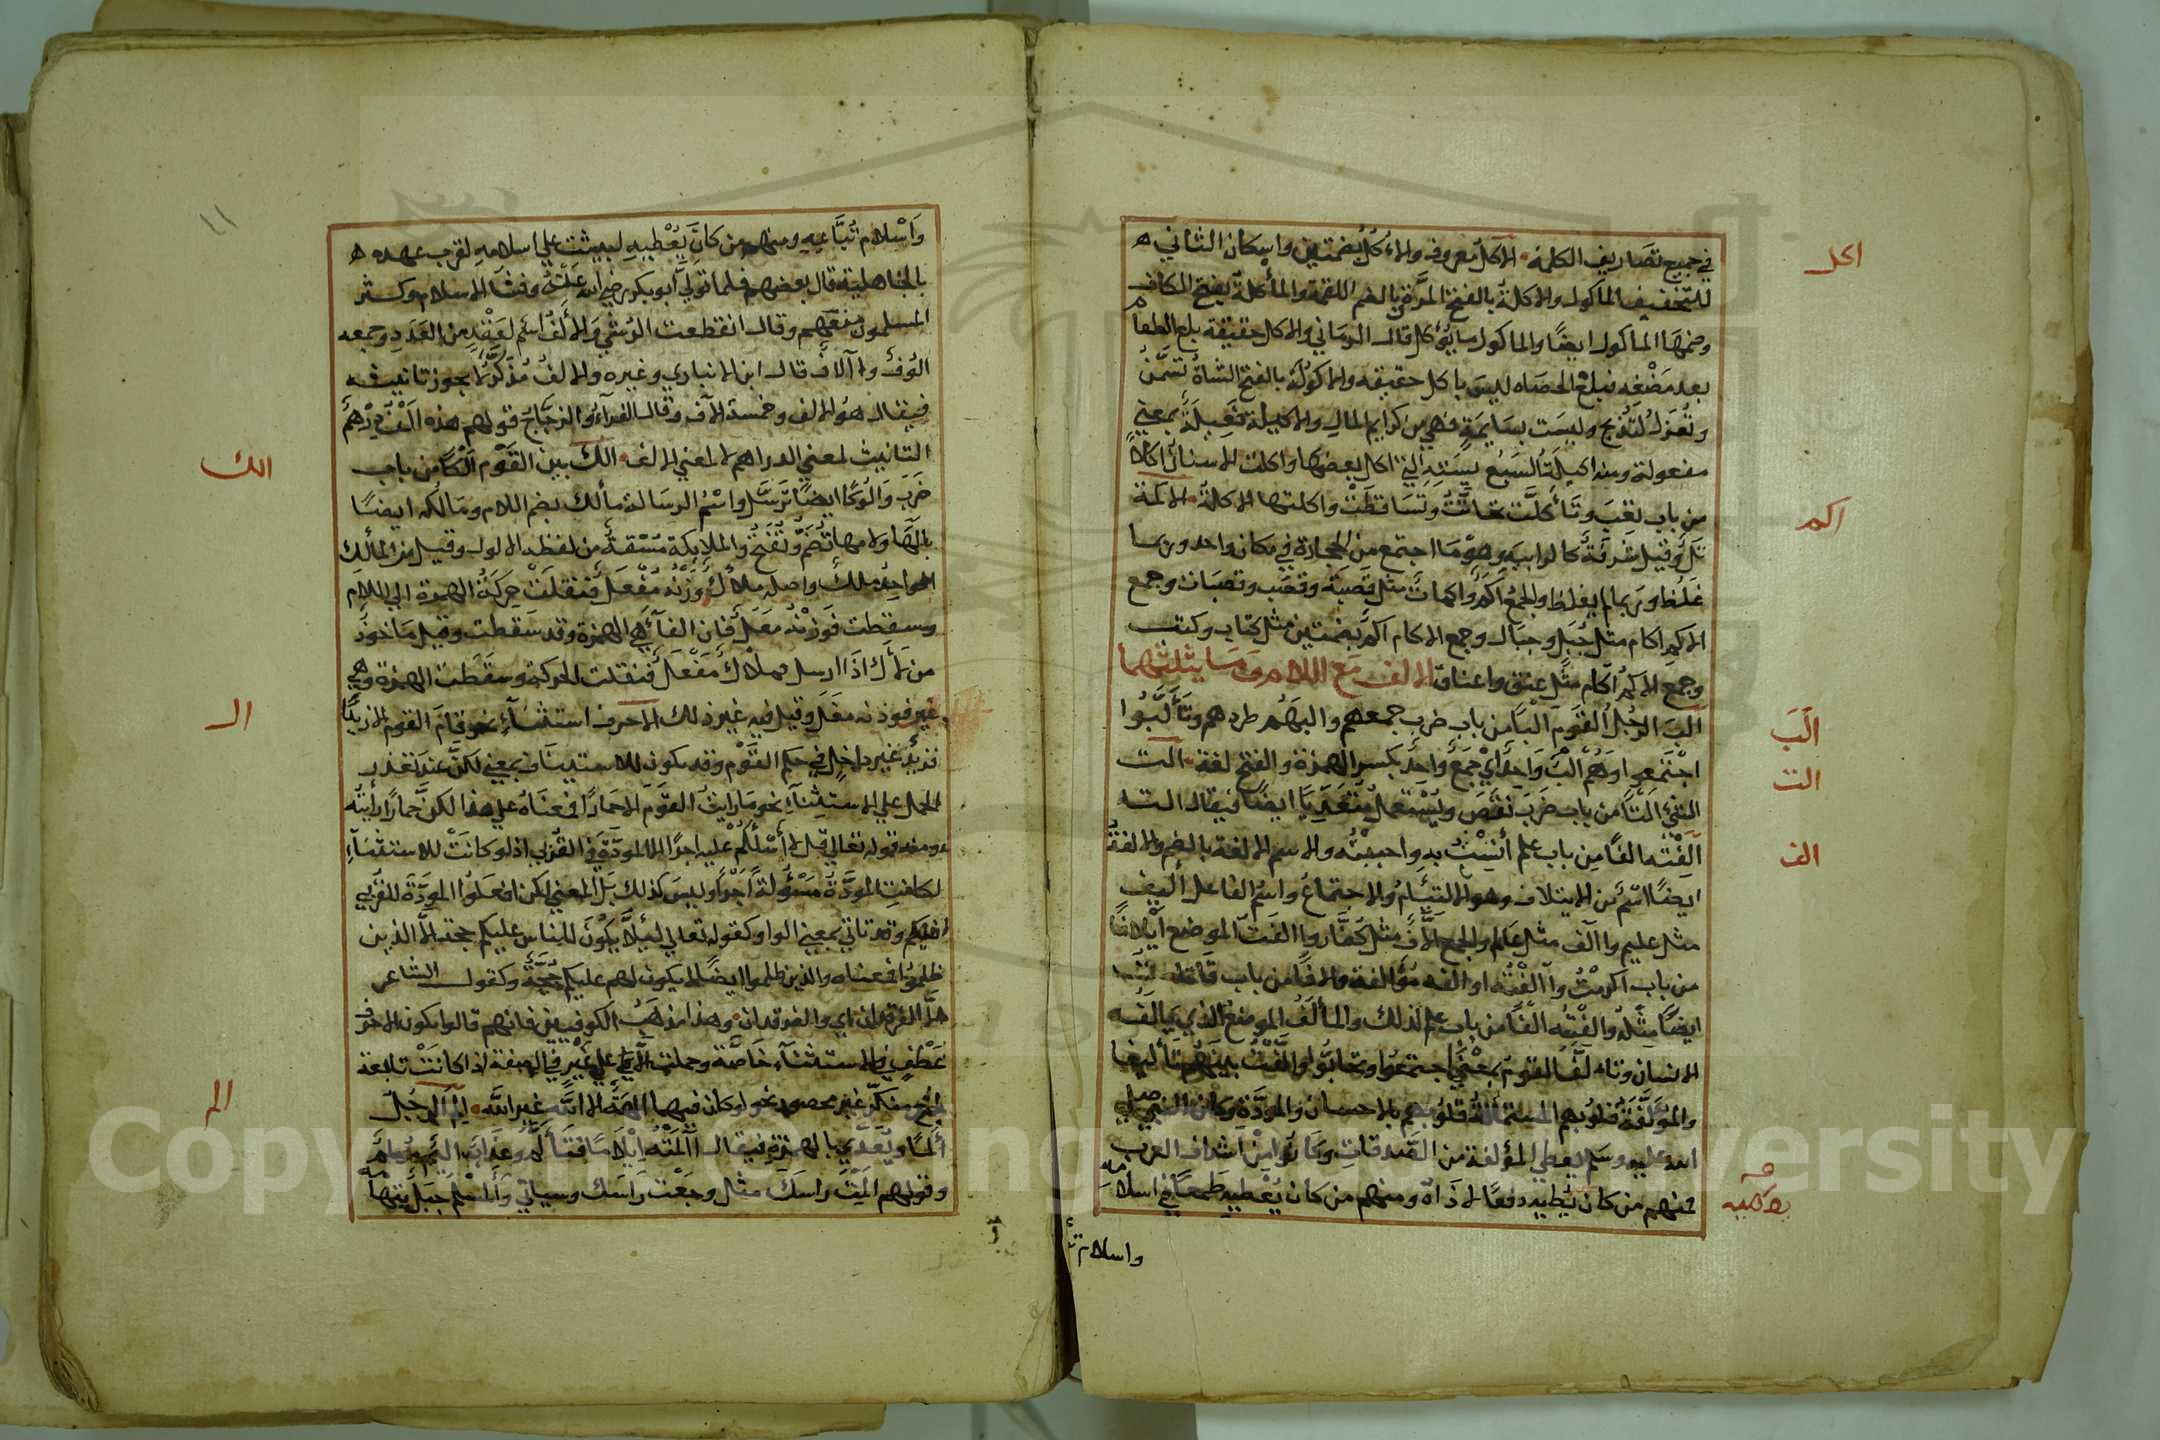 في جميع تصاريف الكلمة الاكل معروف والاُكُل بضمتين واسكان الثاني
للتخفيف المأكول والاكلة بالفتح المرة وبالضم اللقمة والمأكلة بفتح الكاف
وضمها المأكول ايضا والمأكول ما يؤكل قال الرماني والاكل حقيقة بلع الطعام
بعد مضغه فبلع الحصاه ليس باكل حقيقه والاكولة بالفتح الشاة تُسَمَّنُ
وتُعزل لتذبح وليست بسايمة فهي من كرايم المال والاكيلة فعيلة بمعني
مفعولة ومنه اكيلة السبع لفريسته التي اكل بعضها واكلت الاسنان اكلا
من باب تعب وتأكلت تحاتت وتساقطت واكلتها الاكلة الاكمة
تل وقيل شرفة كالرابية وهو ما اجتمع من الحجارة في مكان واحد وربما
غلظ وربما لم يغلظ والجمع اكم واكمات مثل قصبة وقصب وقصبات وجمع
الاكم اكام مثل جبل وجبال وجمع الاكام اكم بضمتين مثل كتاب وكتب
وجمع الاكم آكام مثل عنق واعناق الالف مع اللام وما يثلثهما
الب الرجل القوم البا من باب ضرب جمعهم والبهم طردهم وتألبوا
اجتمعوا وهم الب واحد أي جمع واحد بكسر الهمزة والفتح لغة الت
الشئ التا من باب ضرب نقص ويستعمل متعديا ايضا فيقال الته
الفته الفا من باب علم أنست به واحببته والاسم الالفة بالضم والالفة
ايضا اسم من الايتلاف وهو الالتئام والاجتماع واسم الفاعل أليف
مثل عليم وآلف مثل عالم والجمع أُلّاف مثل كفار وآلفت الموضع ايلافا
من باب اكرمت وآلفته اوالفه مؤالفة والافا من باب قاتلت
ايضا مثله والفته الفا من باب علم لذلك والمألف الموضع الذي يألفه
الانسان وتألف القوم بمعني اجتمعوا وتحابوا والفت بينهم تأليفا
والمؤلفة قلوبهم المستمالة قلوبهم بالاحسان والمودة وكان النبي صلي
الله عليه وسلم يعطي المؤلفة من الصدقات وكانوا من اشراف العرب
فمنهم من كان يعطيه دفعا لاذاه ومنهم من كان يعطيه طمعا في اسلامه
واسلام
اكل
اكم
الب
الت
الف
واسلام تباعه ومنهم من كان يعطيه ليثبت علي اسلامه لقرب عهده
بالجاهلية قال بعضهم فلما تولي أبو بكر رضي الله عنه وفشا الاسلام وكثر
المسلمون منعهم وقال انقطعت الرشي والالف اسم لعقد من العدد وجمعه
الوف وآلاف قال ابن الانباري وغيره والالف مذكر لا يجوز تانيثه
فيقال هو الالف وخمسة الاف وقال الفراء والزجاج قولهم هذه الف درهم
التانيث لمعني الدراهم لا لمعني الالف الك بين القوم الكا من باب
ضرب والوكا ايضا ترسل واسم الرسالة مألك بضم اللام ومألكه ايضا
بالهاء ولامها تضم وتفتح والملايكة مشتقة من لفظ الالوك وقيل من المألك
الواحد ملك واصله ملأك ووزنه مفعل فنقلت حركة الهمزة الي اللام
وسقطت فوزنه معل فان الفاء هي الهمزة وقد سقطت وقيل ماخوذ
من لأك اذا ارسل فملأك مفعل فنقلت الحركة وسقطت الهمزة وهي
عين فوزنه مفل وقيل فيه غير ذلك الا حرف استثناء نحو قام القوم الا زيدا
فزيد غير داخل في حكم القوم وقد تكون للاستيناف بمعني لكن عند تعذر
الحمل علي الاستثناء نحو ما رايت القوم الا حمارا فمعناه علي هذا لكن حمارا رأيته
ومنه قوله تعالي قل لا أسئلكم عليه اجرا الا المودة في القربي اذ لو كانت للاستثناء
لكانت المودة مسؤلة اجرا وليس كذلك بل المعني لكن افعلوا المودة للقربي
فيكم وقد تاتي بمعني الواو كقوله تعالي ليلا يكون للناس عليكم حجة الا الذين
ظلموا فمعناه والذين ظلموا ايضا لا يكون لهم عليكم حجة وكقول الشاعر
الا الفرقدان اي والفرقدان وهذا مذهب الكوفيين فانهم قالوا تكون الا حرف
عطف في الاستثناء خاصة وحملت الا علي غير في الصفة اذا كانت تابعة
لجمع منكر غير محصور نحو لو كان فيهما الهة الا الله اي غير الله الم الرجل
ألما ويعدي بالهمزة فيقال آلمته ايلاما فتألم وعذاب اليم مؤلم
وقولهم المت راسك مثل وجعت راسك وسياتي وألملم جبل بتهامة
الك
الا
الم
١١